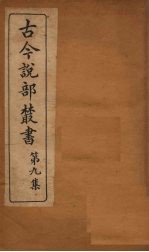 古今說部叢書
第九集